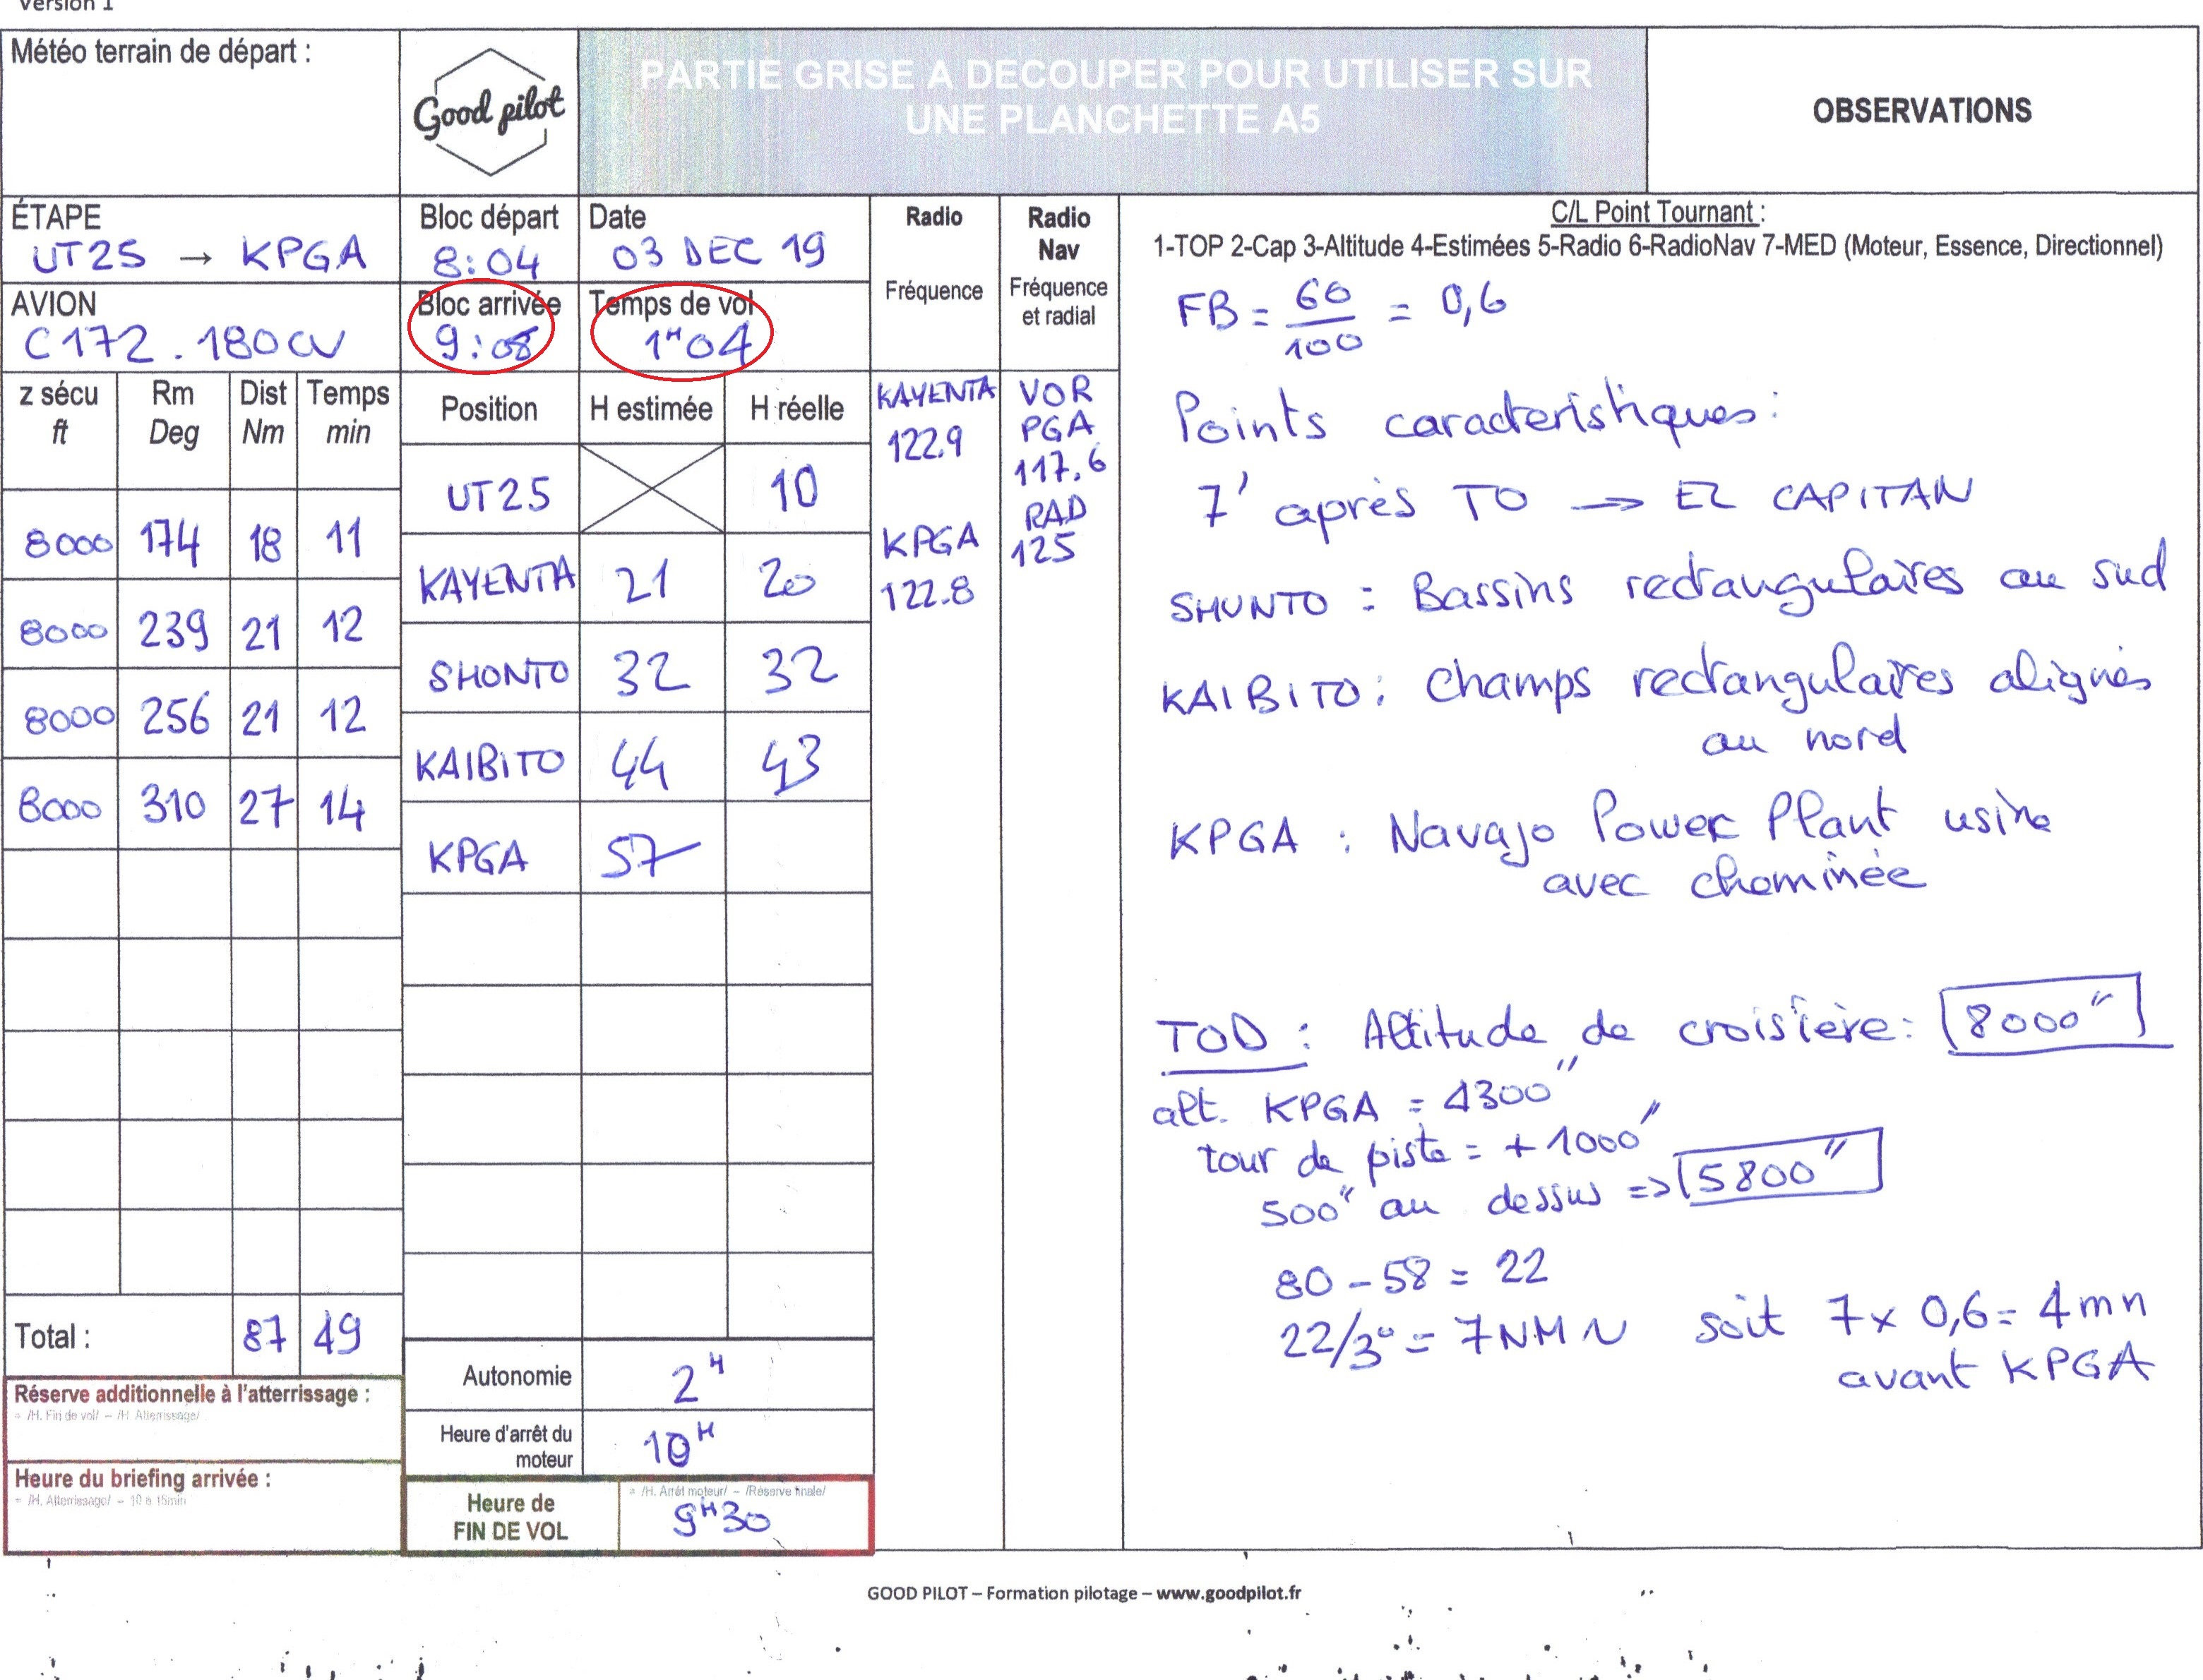 Version 1
Météo terrain de départ :
Good pilot
PARTIE GRISE A DECOUPER POUR UTILISER SUR
UNE PLANCHETTE A5
OBSERVATIONS
ÉTAPE
UT25 → KPGA
Bloc départ
8:04
Date
03 DEC 19
AVION
C172.180CV
Bloc arrivée
9:08
Temps de vol
1H04
Radio
Fréquence
Radio
Nav
Fréquence
et radial
C/L Point Tournant :
1-TOP 2-Cap 3-Altitude 4-Estimées 5-Radio 6-RadioNav 7-MED (Moteur, Essence, Directionnel)
z sécu
ft
Rm
Deg
Dist
Nm
Temps
min
Position
H estimée
H réelle
8000 174 18 11
8000 239 21 12
8000 256 21 12
8000 310 27 14
UT25 10
KAYENTA 21 20
SHONTO 32 32
KAIBITO 44 43
KPGA 57
KAYENTA
122.9
KPGA
122.8
VOR
PGA
117.6
RAD
125
FB = 60/100 = 0,6
Points caracteristiques :
7' après TO → EL CAPITAN
SHUNTO : Bassins rectangulaires au sud
KAIBITO : champs rectangulaires alignés
au nord
KPGA : Navajo Power Plant usine
avec cheminée
TOD : Altitude de croisière : 8000"
alt. KPGA = 4300"
tour de piste = + 1000'
500" au dessus => 5800"
80 - 58 = 22
22/3° = 7NM soit 7 x 0,6 = 4mn
avant KPGA
Total : 87 49
Autonomie 2H
Réserve additionnelle à l'atterrissage :
= /H. Fin de vol/ – /H. Atterrissage/
Heure d'arrêt du
moteur
10H
Heure du briefing arrivée :
= /H. Atterrissage/ – 10 à 15min
Heure de
FIN DE VOL
= /H. Arrêt moteur/ – /Réserve finale/
9H30
GOOD PILOT – Formation pilotage – www.goodpilot.fr